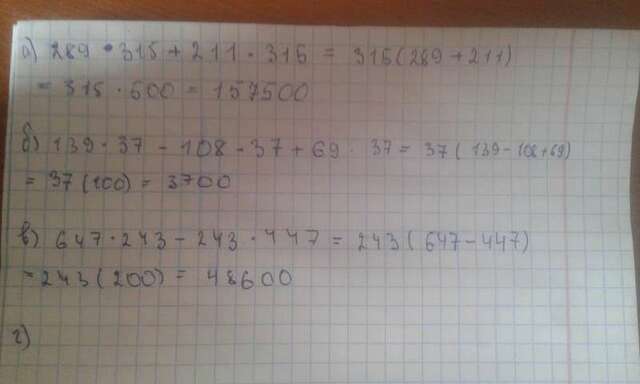 а) 289 • 315 + 211 · 315 = 315(289 + 211)
= 315 · 500 = 157500
б) 139 · 37 - 108 · 37 + 69 · 37 = 37( 139 - 108 + 69)
= 37(100) = 3700
в) 647 · 243 - 243 · 447 = 243(647 - 447)
= 243(200) = 48600
г)